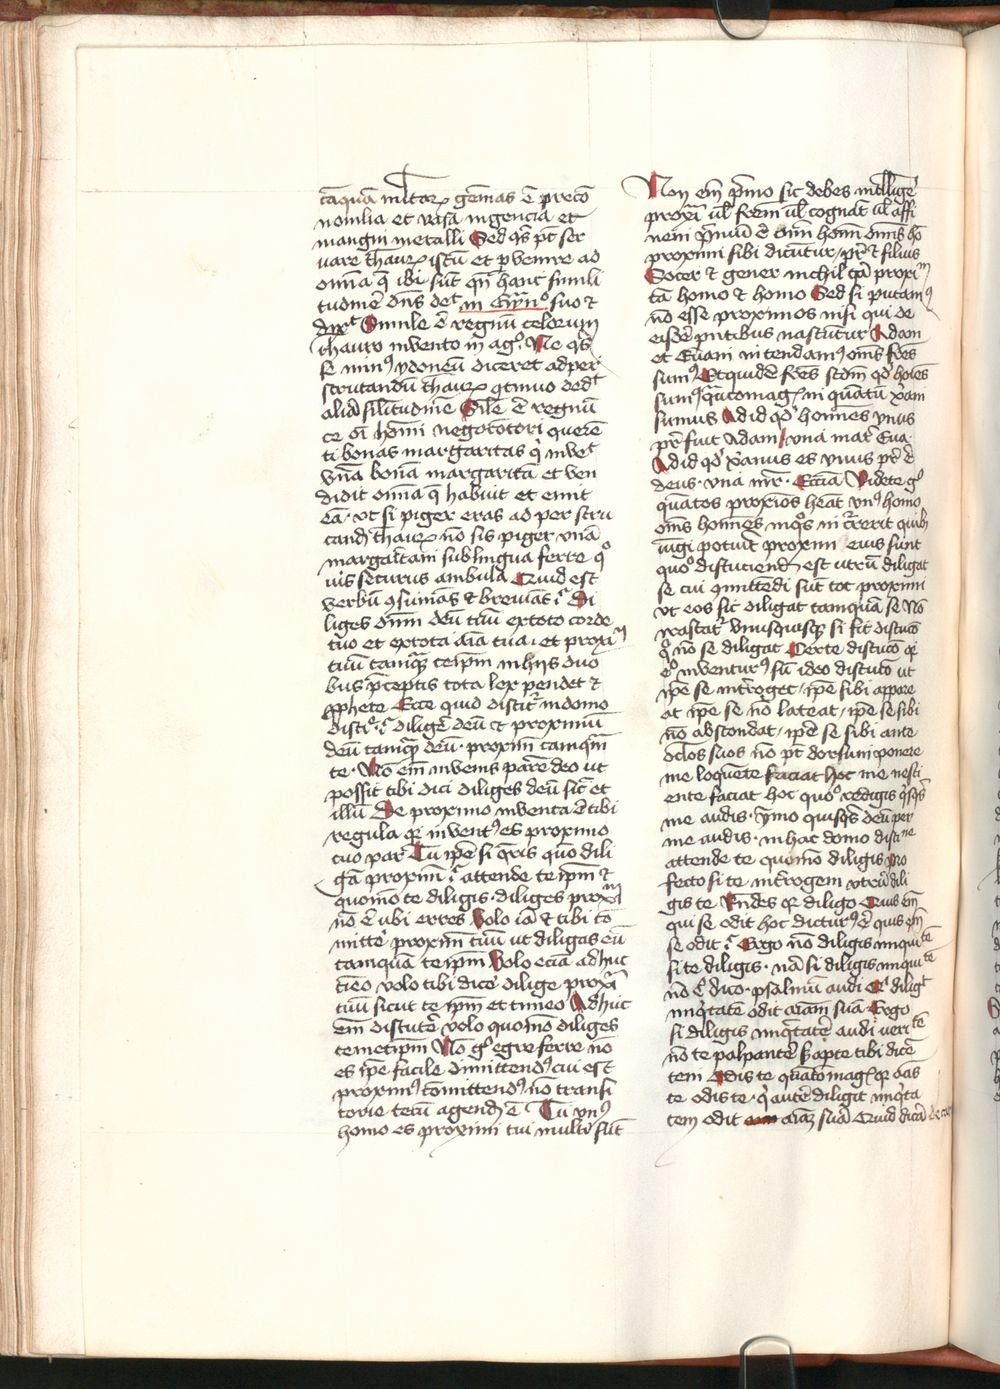 tāquā mltoꝝ gēmas ē preco
nomilia et vasa ingencia et
mangni metalli Sed qͥs pt̄ ser
uare thauꝝ istū et ꝑuenire ad
omīa q̄ ibi sūt qn̄ hanc simili
tudinē dn̄s det in Ewāᵒ suo ⁊
dixᵗ Simile ē regnū celorum
thauro invento in agᵒ Ne qͥs
si minꝰ ydoneū diceret ad per
scrutandū thauꝝ ꝯtinuo dedᵗ
aliā silitudinē Sile ē regnū
ce oī hom̄i negotōtori querē
ti bonas margaritas qͥ invēᵗ
vnā bonā margaritā et ven
didit omīa q̄ habuit et emit
eā· vt si piger eras ad per scru
tandū thauꝝ nō sis piger vnā
margaritam sub lingua ferre qᵒ
uis securus ambula Quid est
verbū ꝯsumās ⁊ breuiāt iͨ Di
liges dn̄m deū tuū ex toto corde
tuo et ex tota aīa tua· et proxīᵐ
tuū tamqͣꝫ teip̄m in hijs duo
bus p̄ceptis tota lex pendet ⁊
ꝓphete Ecce quid discitͬ in domo
discīᵉ iͨ diligē deū et proximū
deū tamqͣꝫ deū· proximū tamqͣm
te· Nō em̄ invenis parē deo ut
possit tibi dici diliges deū sic̄ et
illū De proximo inventa ē tibi
regula qꝛ inventꝰ es proximo
tuo par Tu ip̄e si qͥris quō dili
gā proximū iͨ attende te ip̄m ⁊
quomō te diligis· diliges proxīᵐ
nō ē ubi erres Volo iā ⁊ tibi cō
mittē proximū tuū ut diligas eū
tamquā te ip̄m Volo eciā adhuc
timeo volo tibi dicē dilige proxīᵐ
tuū sicut te ip̄m et timeo Adhuc
em̄ discutē volo quomō diliges
temetip̄m Nō gᵒ egre ferre nō
es ip̄e facile dimittendꝰ cui est
proximꝰ cōmittendꝰ nō transi
torie tecū agendū ē Tu vnꝰ
homo es proximi tui multi sūt
Non em̄ p̄mo sic debes intllige
proxīᵐ ul̄ frēm ul̄ cognāt ul̄ affi
nem proximū ē om̄i hom̄i om̄is hō
proximi sibi dicūtur pr̄ ⁊ filius
Socer ⁊ gener nichil tā proxiᵐ
tā homo ⁊ homo Sed si putamꝰ
nō esse proximos nisi qui de
eisdē pn̄tibus nascūtur Adam
et Euam intendamꝰ oms frēs
sumꝰ Et quidē frēs scd̄m qᵈ hoīes
sumꝰ quātomagꝭ in quātū xp̄ani
sumus Ad id qᵈ homīnes vnus
pr̄ fuit Adam vna mat̄ Eua
Ad id qᵈ xp̄anus es vnus pr̄ ē
deus· vna mr̄· Ecc̄ia Videte gᵒ
quātos proxios heāt vnꝰ homo
om̄s homines inqͦs incͬrerit quibꝫ
iūgi potuit proximi eius sunt
quōᵒ discuciendū est utrū diligat
se cui ꝯmittēdi sūt tot proximi
ut eos sic diligat tamquā se Nō
irascatͬ vnusquisqꝫ si sit discutō
qͥ nō se diligat Certe discutō qꝛ
eᵒ inventurꝰ sū ideo discutō ut
ip̄e se introget ip̄e sibi appare
at ip̄e se nō lateat ip̄e se sibi
nō abscondat ip̄e se sibi ante
oclos suos nō pt̄ dorsum ponere
me loquēte faciat hoc me nesci
ente faciat hoc quoᵒ redigis qͥsqͥs
me audis· ymo quisqͥs deū per
me audis· in hac domo disciⁿᵉ
attende te quomō diligis pro
fecto si te introgem vtrū dili
gis te Rn̄des qꝛ diligo Quis em̄
qui se odit hoc dicturꝰ ē quis em̄
se odit iͨ Ergo nō diligis iniquiᵗᵉ
si te diligis· nā si diligis iniquiᵗᵉ
nō eͨ duo· psalmū audi Qͥ diligᵗ
iniqͥtatē odit aīam suā Ergo
si diligis iniqͥtatē audi veriᵗᵉ
nō te palpantē ß apte tibi dicē
tem Odis te quātomagꝭ qꝛ dās
te odis te· qͥ autē diligit iniqͥta
tem odit aīaꝫ suā Quid dicā